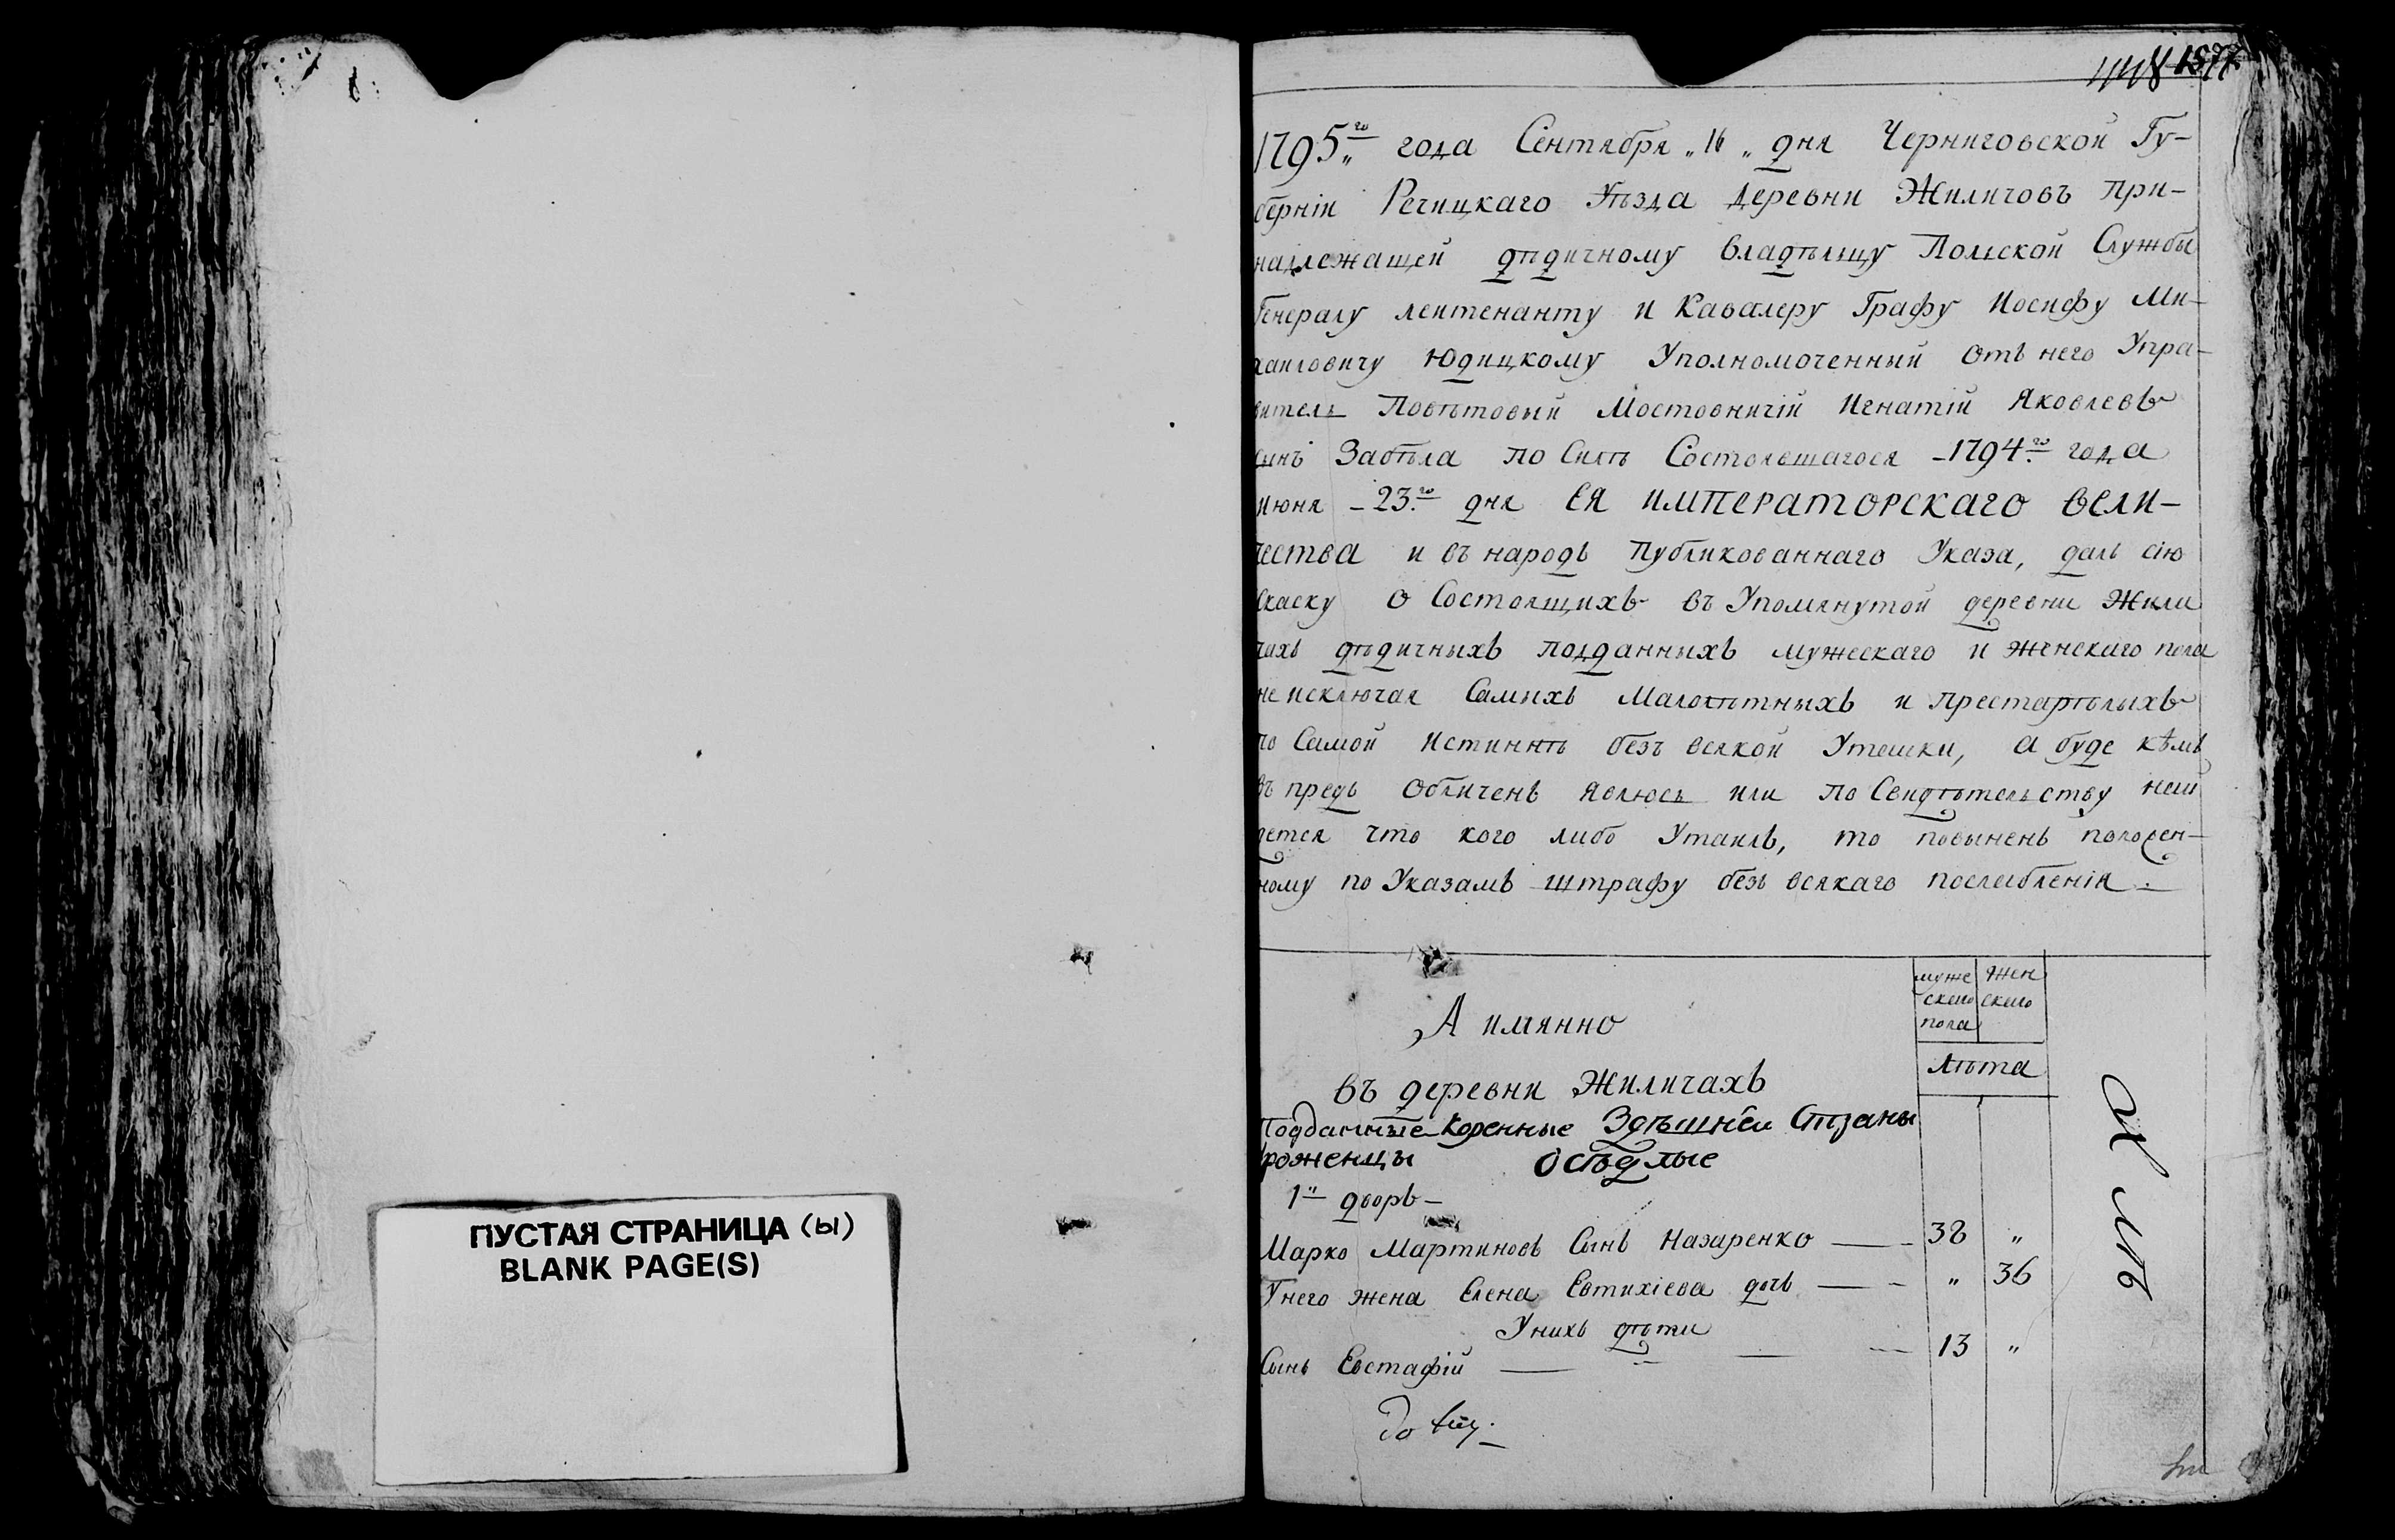 ПУСТАЯ СТРАНИЦА (ы)
BLANK PAGE(S)
1577
1795го года Сентября „16„ дня Черниговской Гу-
берніи Речицкаго Уѣзда деревни Жиличовъ при-
надлежащей дѣдичному владѣлцу Полской Службы
Генералу леитенанту и Кавалеру Графу Иосифу Ми-
хаиловичу Юдицкому Уполномоченный отъ него Упра-
витель Повѣтовый Мостовничій Игнатій Яковлевъ
сынъ Забѣла по Силѣ Состоявшагося 1794го года
июня 23го дня ЕЯ ИМПЕРАТОРСКАГО ВЕЛИ-
ЧЕСТВА и въ народъ Публикованнаго Указа, далъ сію
Скаску о Состоящихъ въ Упомянутой деревни Жили
чахъ дѣдичныхъ подданныхъ мужескаго и женскаго пола
не исключая Самихъ Малолѣтныхъ и престарѣлыхъ
по Самой Истиннѣ безъ всякой Утешки, а буде кѣмъ
въ предъ Обличенъ явлюсь или по Свидѣтельству най
дется что кого либо Утаилъ, то повыненъ положен-
ному по Указамъ штрафу безъ всякаго послабленія.
муже
скаго
пола
жен
скаго
А имянно
лѣта
въ деревни Жиличахъ
Подданные коренные Здѣшнеи Страны
роженцы осѣдлые
1й дворъ
Марко Мартиновъ Сынъ Назаренко 38 „
Унего жена Елена Евтихіева дочь „ 36
Унихъ дѣти
Сынъ Евстафій 13 „